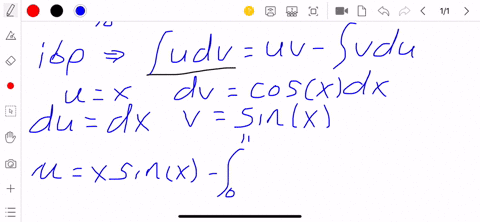 1/1
ibp ⇒ ∫udv = uv - ∫vdu
u = x dv = cos(x)dx
du = dx v = sin(x)
u = x sin(x) - ∫₀